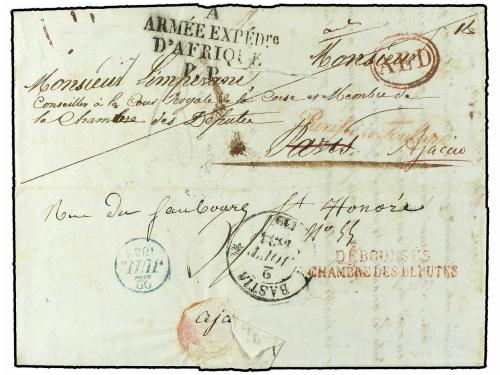 A
ARMÉE EXPÉDre
D'AFRIQUE
P.P.
Monsieur
A.E.D
Monsieur Limperani
Conseiller à la Cour Royale de la Corse et Membre de
la Chambre des Députés
Paris
Ajaccio
Rue du faubourg St Honoré
No 55
DÉBOURSÉS
CHAMBRE DES DÉPUTÉS
22
JUIL
BASTIA
2
(19)
aja